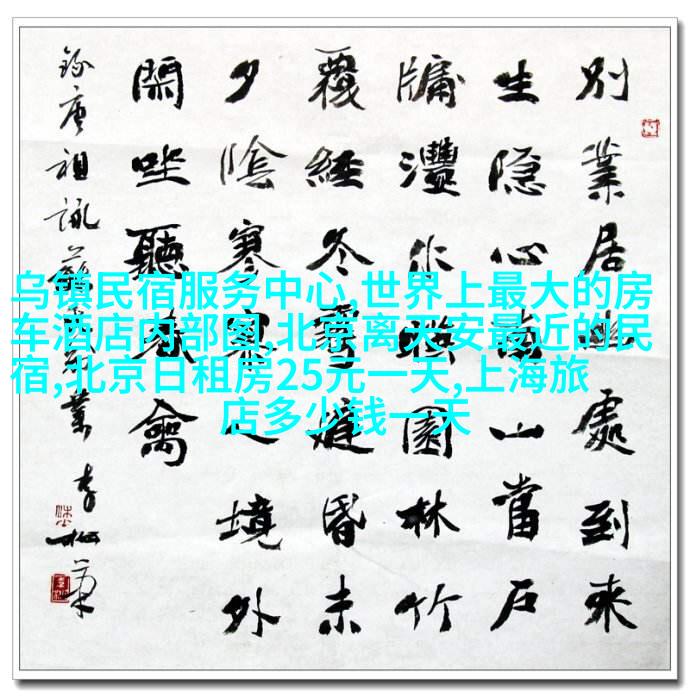 别業居幽處到来
生隐心南山當戶
牖灃水映園林竹
覆經冬雪庭昏未
夕陰寥寥人境外
閑坐聽春禽
錄唐祖詠蘇氏别業
乌镇民宿服务中心,世界上最大的房
车酒店内部图,北京离天安最近的民
宿,北京日租房25元一天,上海旅
店多少钱一天